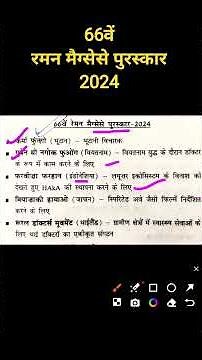 66वें
रमन मैग्सेसे पुरस्कार
2024
66वें रमन मैग्सेसे पुरस्कार-2024
कर्मा फुंत्शो (भूटान) – भूटानी विचारक
थी नगोक फुओंग (वियतनाम) – वियतनाम युद्ध के दौरान डॉक्टर
के रूप में काम करने के लिए
फरवीजा फरहान (इंडोनेशिया) – ल्यूसर इकोसिस्टम के विनाश को
देखते हुए HAkA की स्थापना करने के लिए
मियाजाकी हायाओ (जापान) – स्पिरिटेड अवे जैसी फिल्में निर्देशित
करने के लिए
रूरल डॉक्टर्स मूवमेंट (थाईलैंड) – ग्रामीण क्षेत्रों में स्वास्थ्य सेवाओं के
लिए थाई डॉक्टरों का एकीकृत संगठन